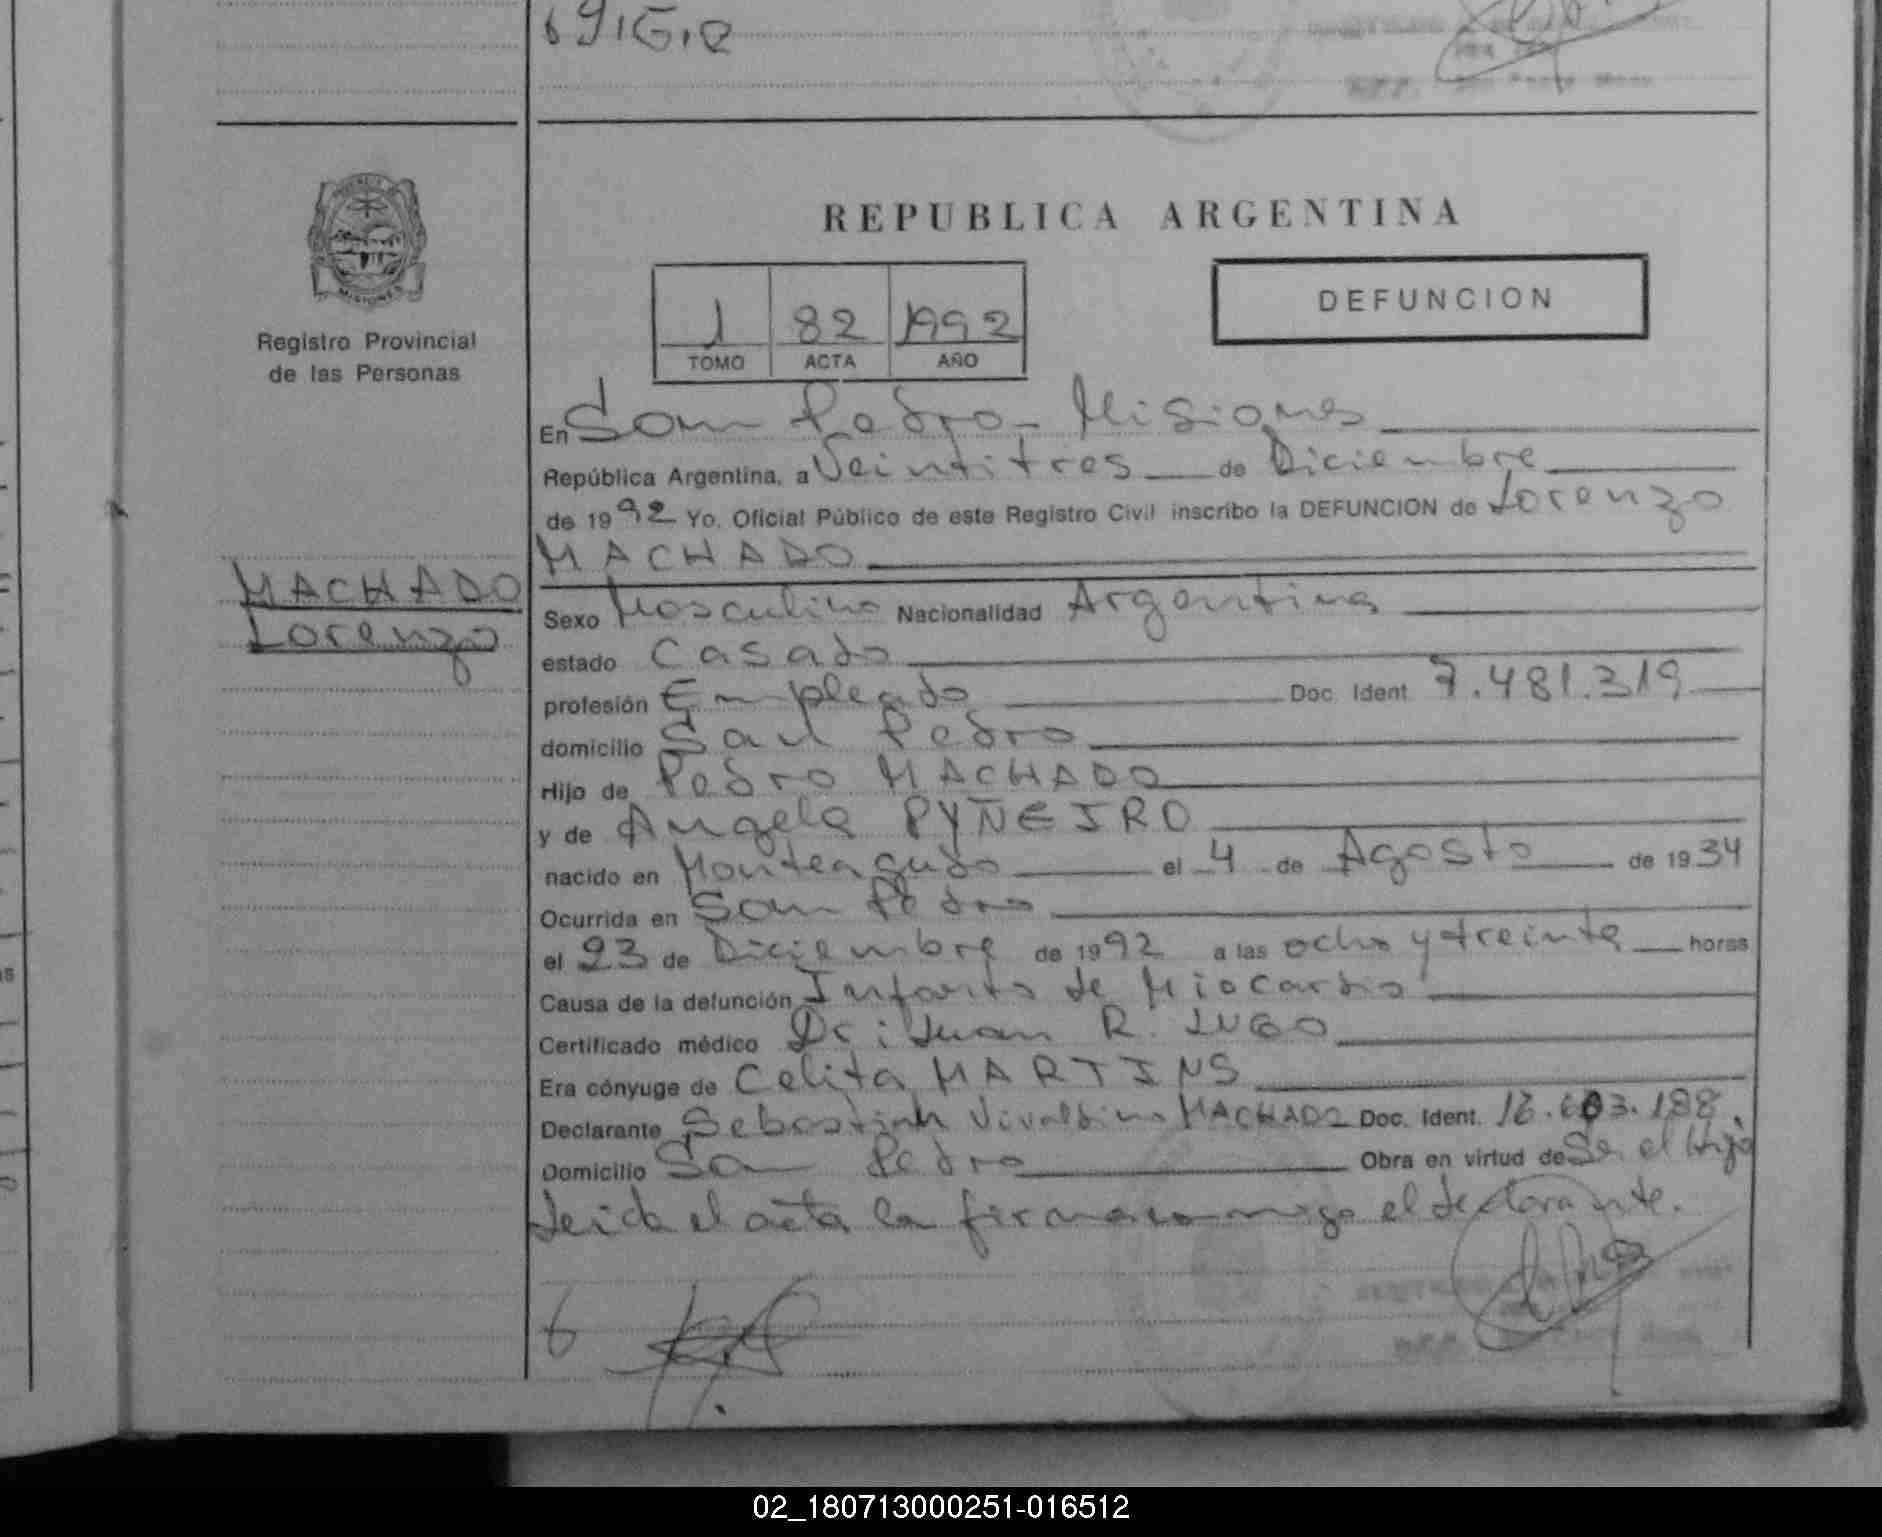 REPUBLICA ARGENTINA
PROVINCIA DE
MISIONES
Registro Provincial
de las Personas
1 82 1992
TOMO ACTA AÑO
DEFUNCION
En San Pedro - Misiones
República Argentina, a Veintitres de Diciembre
de 1992 Yo, Oficial Público de este Registro Civil inscribo la DEFUNCION de Lorenzo
MACHADO
MACHADO
Lorenzo
Sexo Masculino Nacionalidad Argentina
estado Casado
profesión Empleado Doc. Ident. 7.481.319
domicilio San Pedro
Hijo de Pedro MACHADO
y de Angela PYÑEIRO
nacido en Monteagudo el 4 de Agosto de 1934
Ocurrida en San Pedro
el 23 de Diciembre de 1992 a las ocho y treinta horas
Causa de la defunción Infarto de Miocardio
Certificado médico Dr: Juan R. LUGO
Era cónyuge de Celita MARTINS
Declarante Sebastian Vivaldino MACHADO Doc. Ident. 16.603.188.
Domicilio San Pedro Obra en virtud de Ser el Hijo
Leida el acta la firma conmigo el declarante.
02_180713000251-016512